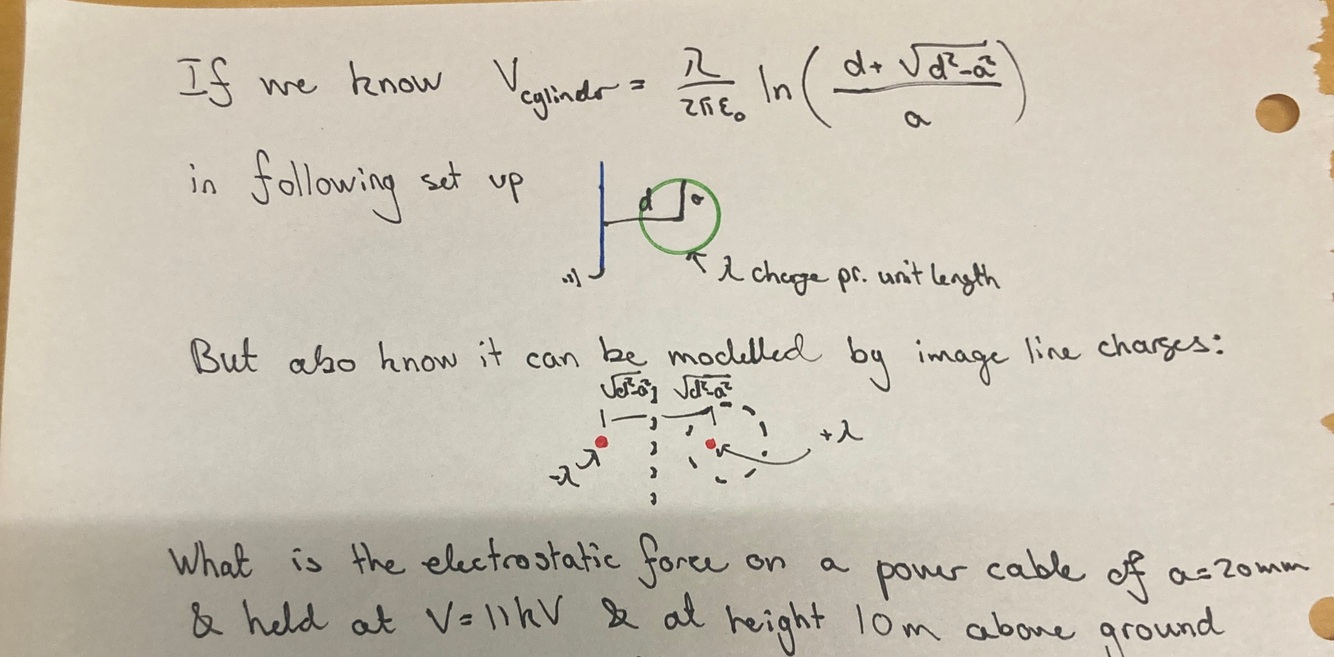 If we know V_cylinder = λ/(2πε₀) ln((d+√(d²-a²))/a)
in following set up
d a
λ charge pr. unit length
But also know it can be modelled by image line charges:
√(d²-a²) √(d²-a²)
+λ
-λ
What is the electrostatic force on a power cable of a=20mm
& held at V=11kV & at height 10m above ground